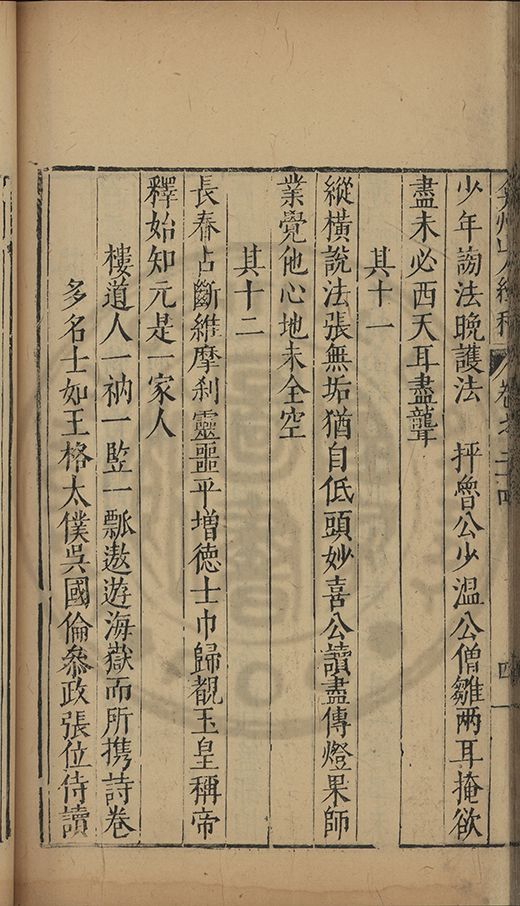 弇州山人續稿 卷之二十四
少年謗法晚護法 抨魯公少溫公僧雛两耳掩欲
盡未必西天耳盡聾
其十一
縱橫說法張無垢猶自低頭妙喜公讀盡傳燈果師
業覺他心地未全空
其十二
長春占斷維摩刹靈噩平增德士巾歸覲玉皇稱帝
釋始知元是一家人
樓道人一衲一監一瓢遨遊海嶽而所携詩卷
多名士如王格太僕吳國倫叅政張位侍讀